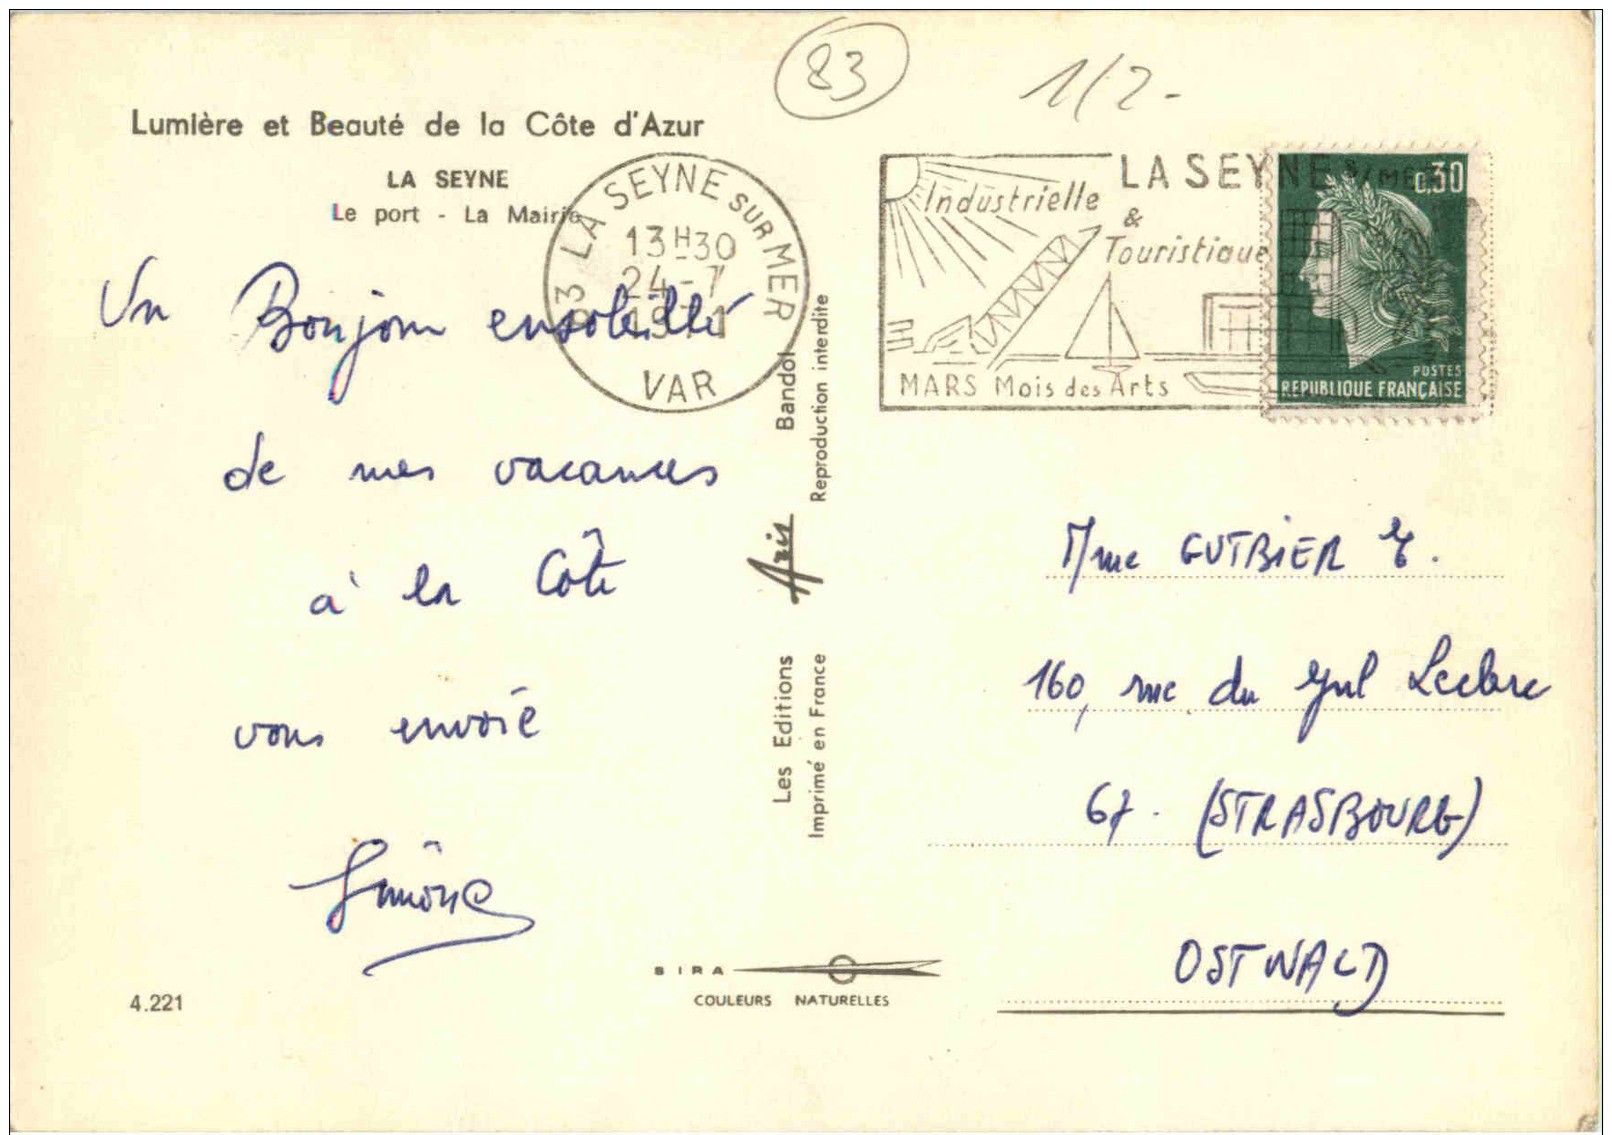 83
1/2-
Lumière et Beauté de la Côte d'Azur
LA SEYNE
Le port - La Mairie
83 LA SEYNE SUR MER
13H30
24-7
1971
VAR
LA SEYNE S/MER
Industrielle
&
Touristique
MARS Mois des Arts
0,30
POSTES
REPUBLIQUE FRANÇAISE
Un Bonjour ensoleillé
de mes vacances
à la Côte
vous envoie
Simone
Les Editions Aris Bandol
Imprimé en France Reproduction interdite
Mme GUTBIER E.
160, rue du Gnl Leclerc
67. (STRASBOURG)
OSTWALD
SIRA
COULEURS NATURELLES
4.221